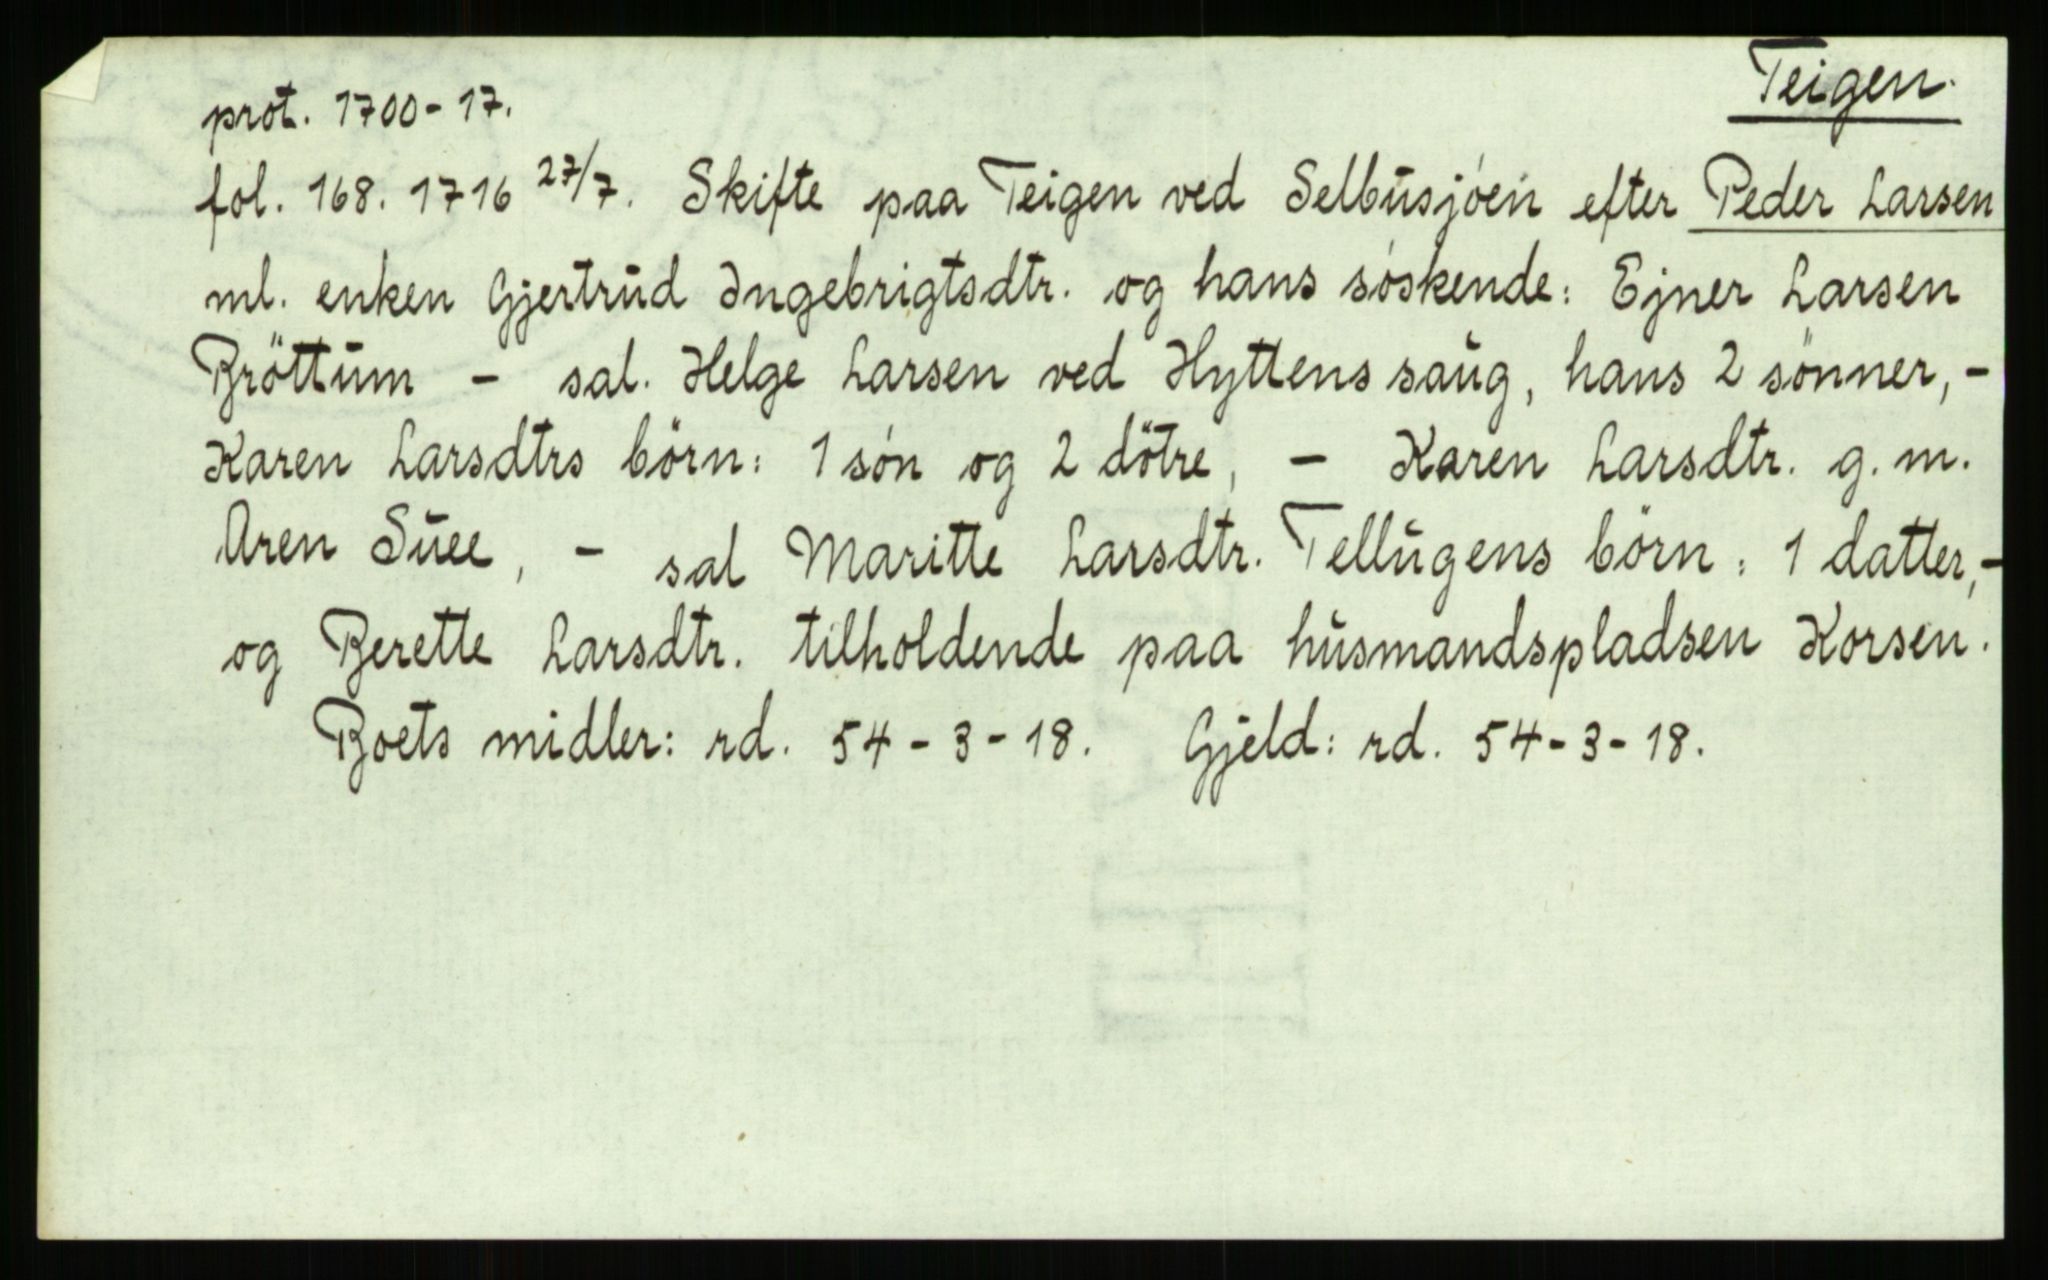 Teigen.
prot. 1700-17.
fol. 168. 1716 27/7. Skifte paa Teigen ved Selbusjöen efter Peder Larsen
ml. enken Gjertrud Ingebrigtsdtr. og hans söskende: Ejner Larsen
Bröttum - sal. Helge Larsen ved Hyttens saug, hans 2 sönner, -
Karen Larsdtrs börn: 1 sön og 2 dötre, - Karen Larsdtr. g. m.
Aren Suee, - sal Maritte Larsdtr. Tellugens börn: 1 datter, -
og Berette Larsdtr. tilholdende paa husmandspladsen Korsen.
Boets midler: rd. 54-3-18. Gjeld: rd. 54-3-18.